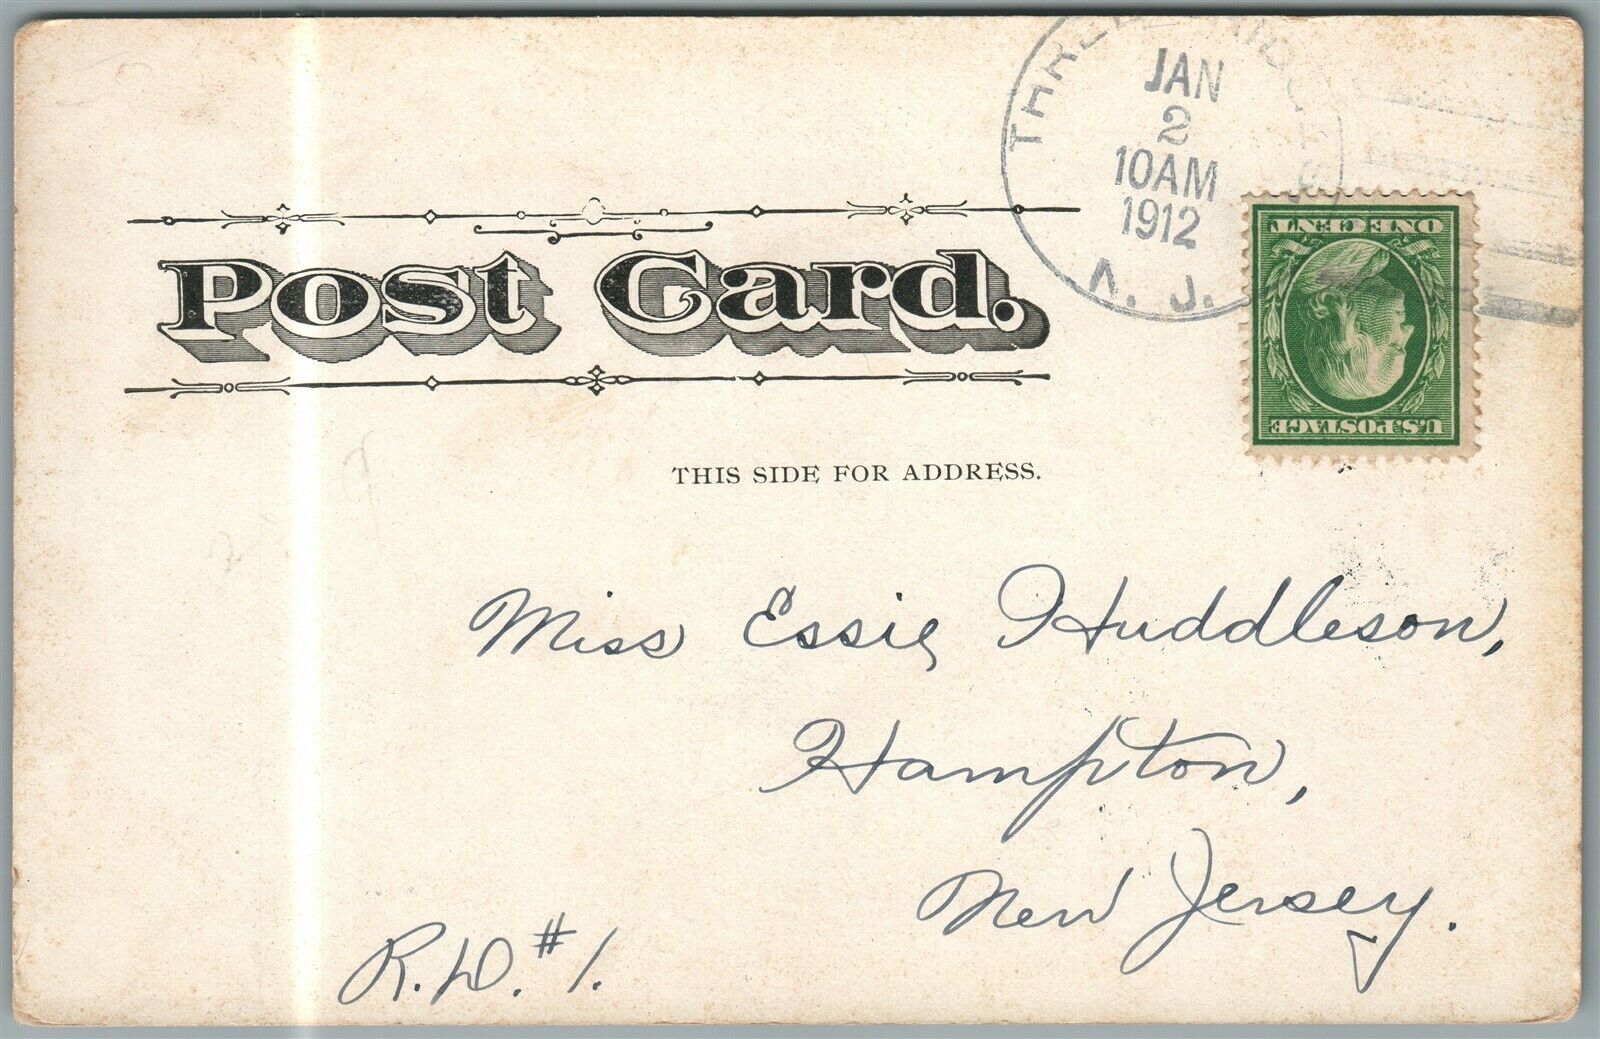 THREE BRIDGES
JAN
2
10AM
1912
N. J.
ONE CENT
U.S. POSTAGE
Post Card.
THIS SIDE FOR ADDRESS.
Miss Essie Huddleson,
Hampton,
New Jersey.
R.D. #1.